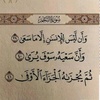 وَأَن لَّيْسَ لِلْإِنسَٰنِ إِلَّا مَا سَعَىٰ
وَأَنَّ سَعْيَهُۥ سَوْفَ يُرَىٰ
ثُمَّ يُجْزَىٰهُ ٱلْجَزَآءَ ٱلْأَوْفَىٰ